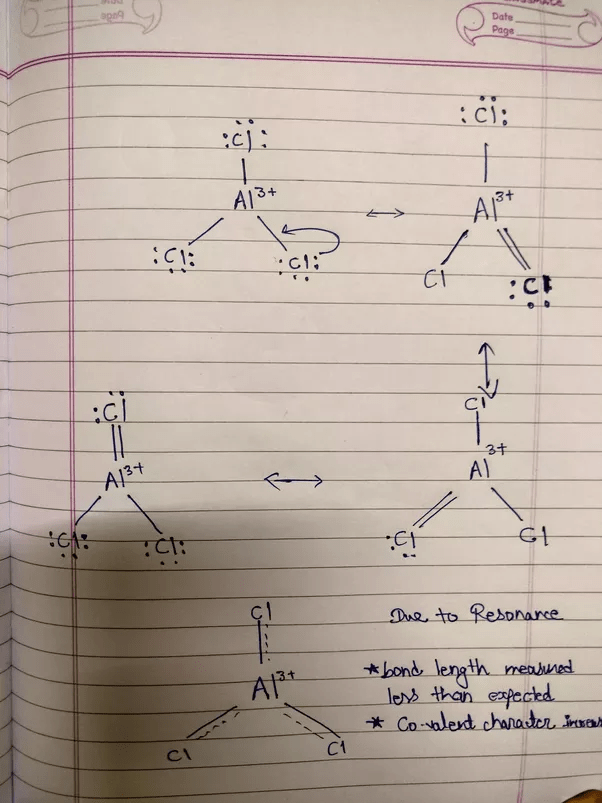 Date
Page
:Cl:
:Cl:
Al3+
Al3+
:Cl:
:Cl:
Cl
:Cl
Cl
:Cl
3+
Al3+
Al
:Cl:
:Cl:
:Cl
Cl
Cl
Due to Resonance
Al3+
*bond length measured
less than expected
* Co-valent character
Cl
Cl